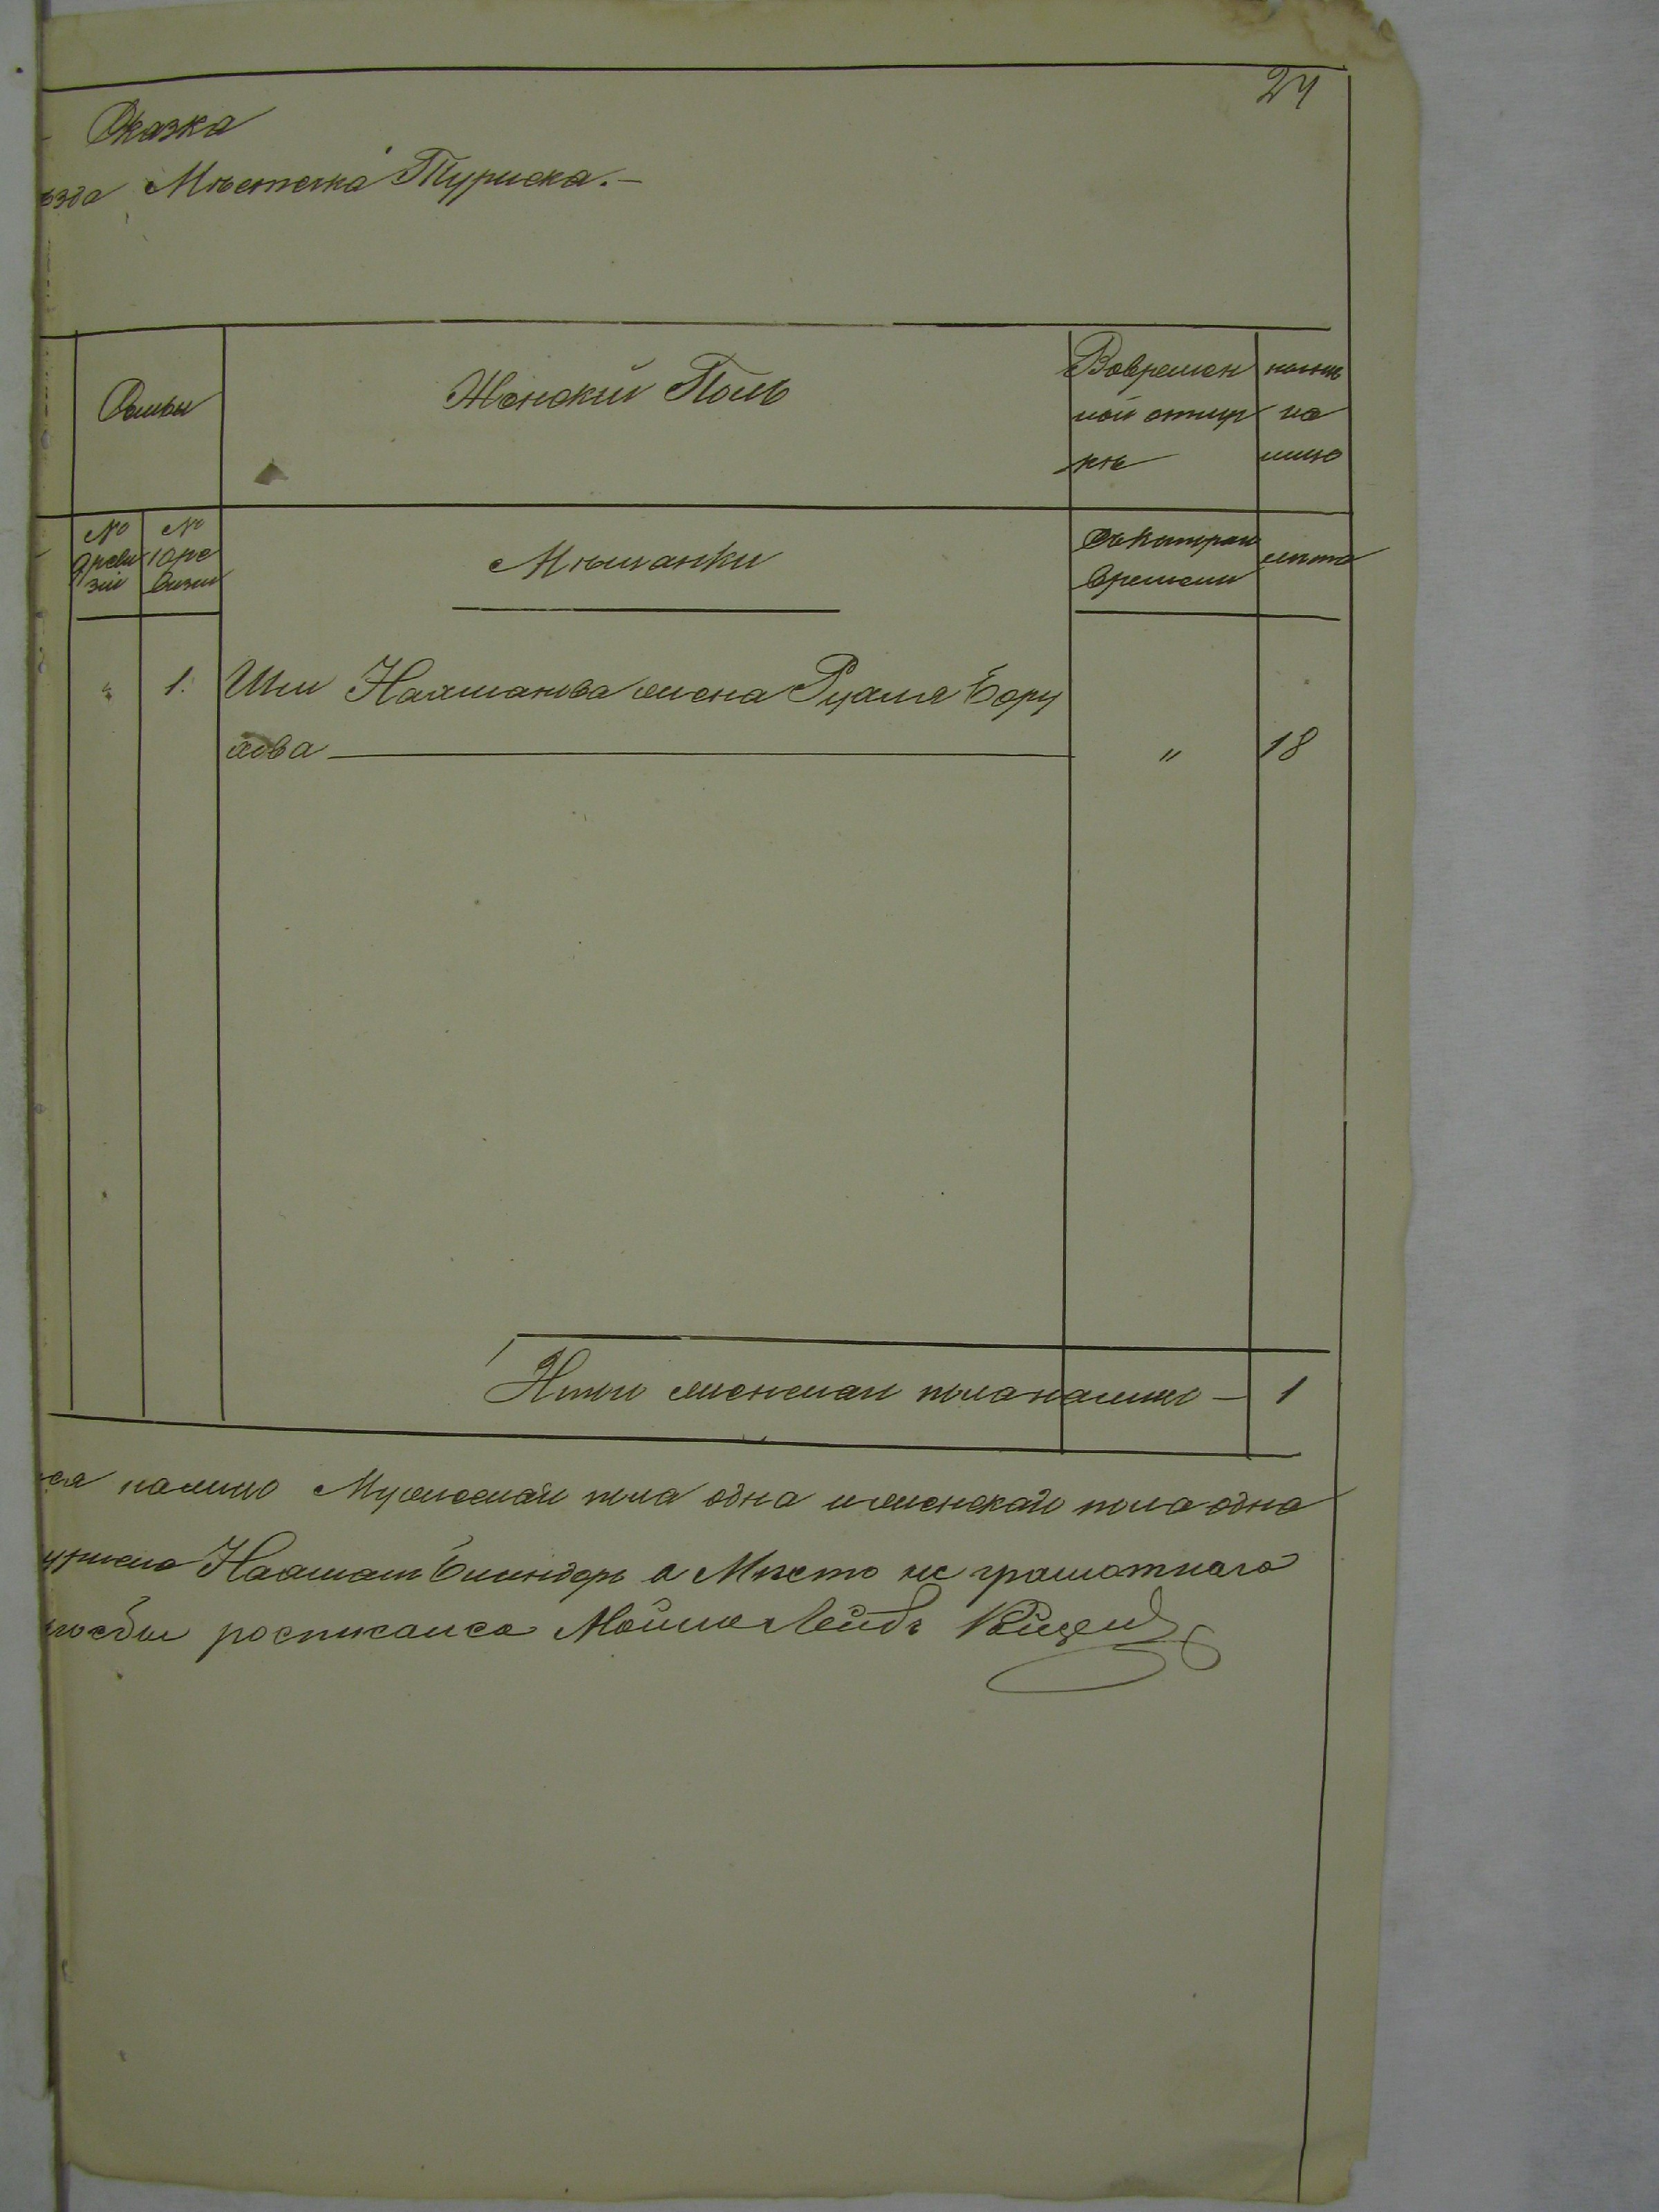 24
Сказка
ѣзда Мѣстечка Турийска.–
Семьи
Женский Полъ
Вовремен
ной отлуч
кѣ
нынѣ
на
лицо
№
9 реви
зіи
№
10 ре
визіи
Мѣщанки
Съкоторого
времени
лѣта
„ 1. Нахманова жена Рухля Бору
хова „ 18
Итого женскаго пола налицо – 1
ся налицо Мужескаго пола одна и женскаго пола одна
Нахманъ а Мѣсто не грамотнаго
росписался Мошко Лейбъ